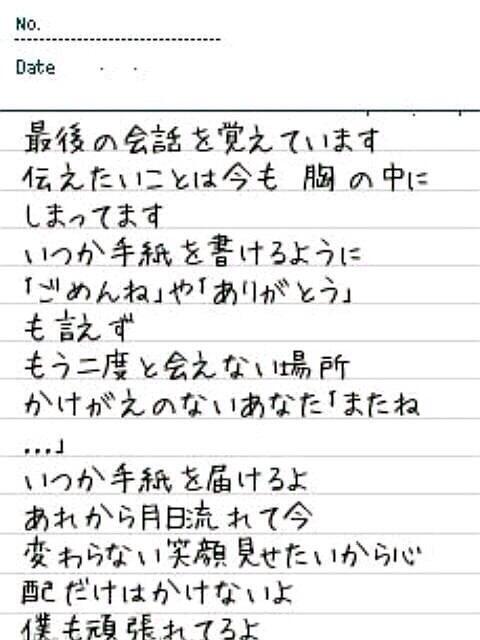 No.
Date . .
最後の会話を覚えています
伝えたいことは今も 胸の中に
しまってます
いつか手紙を書けるように
「ごめんね」や「ありがとう」
も言えず
もう二度と会えない場所
かけがえのないあなた「またね
…」
いつか手紙を届けるよ
あれから月日流れて今
変わらない笑顔見せたいから心
配だけはかけないよ
僕も頑張れてるよ